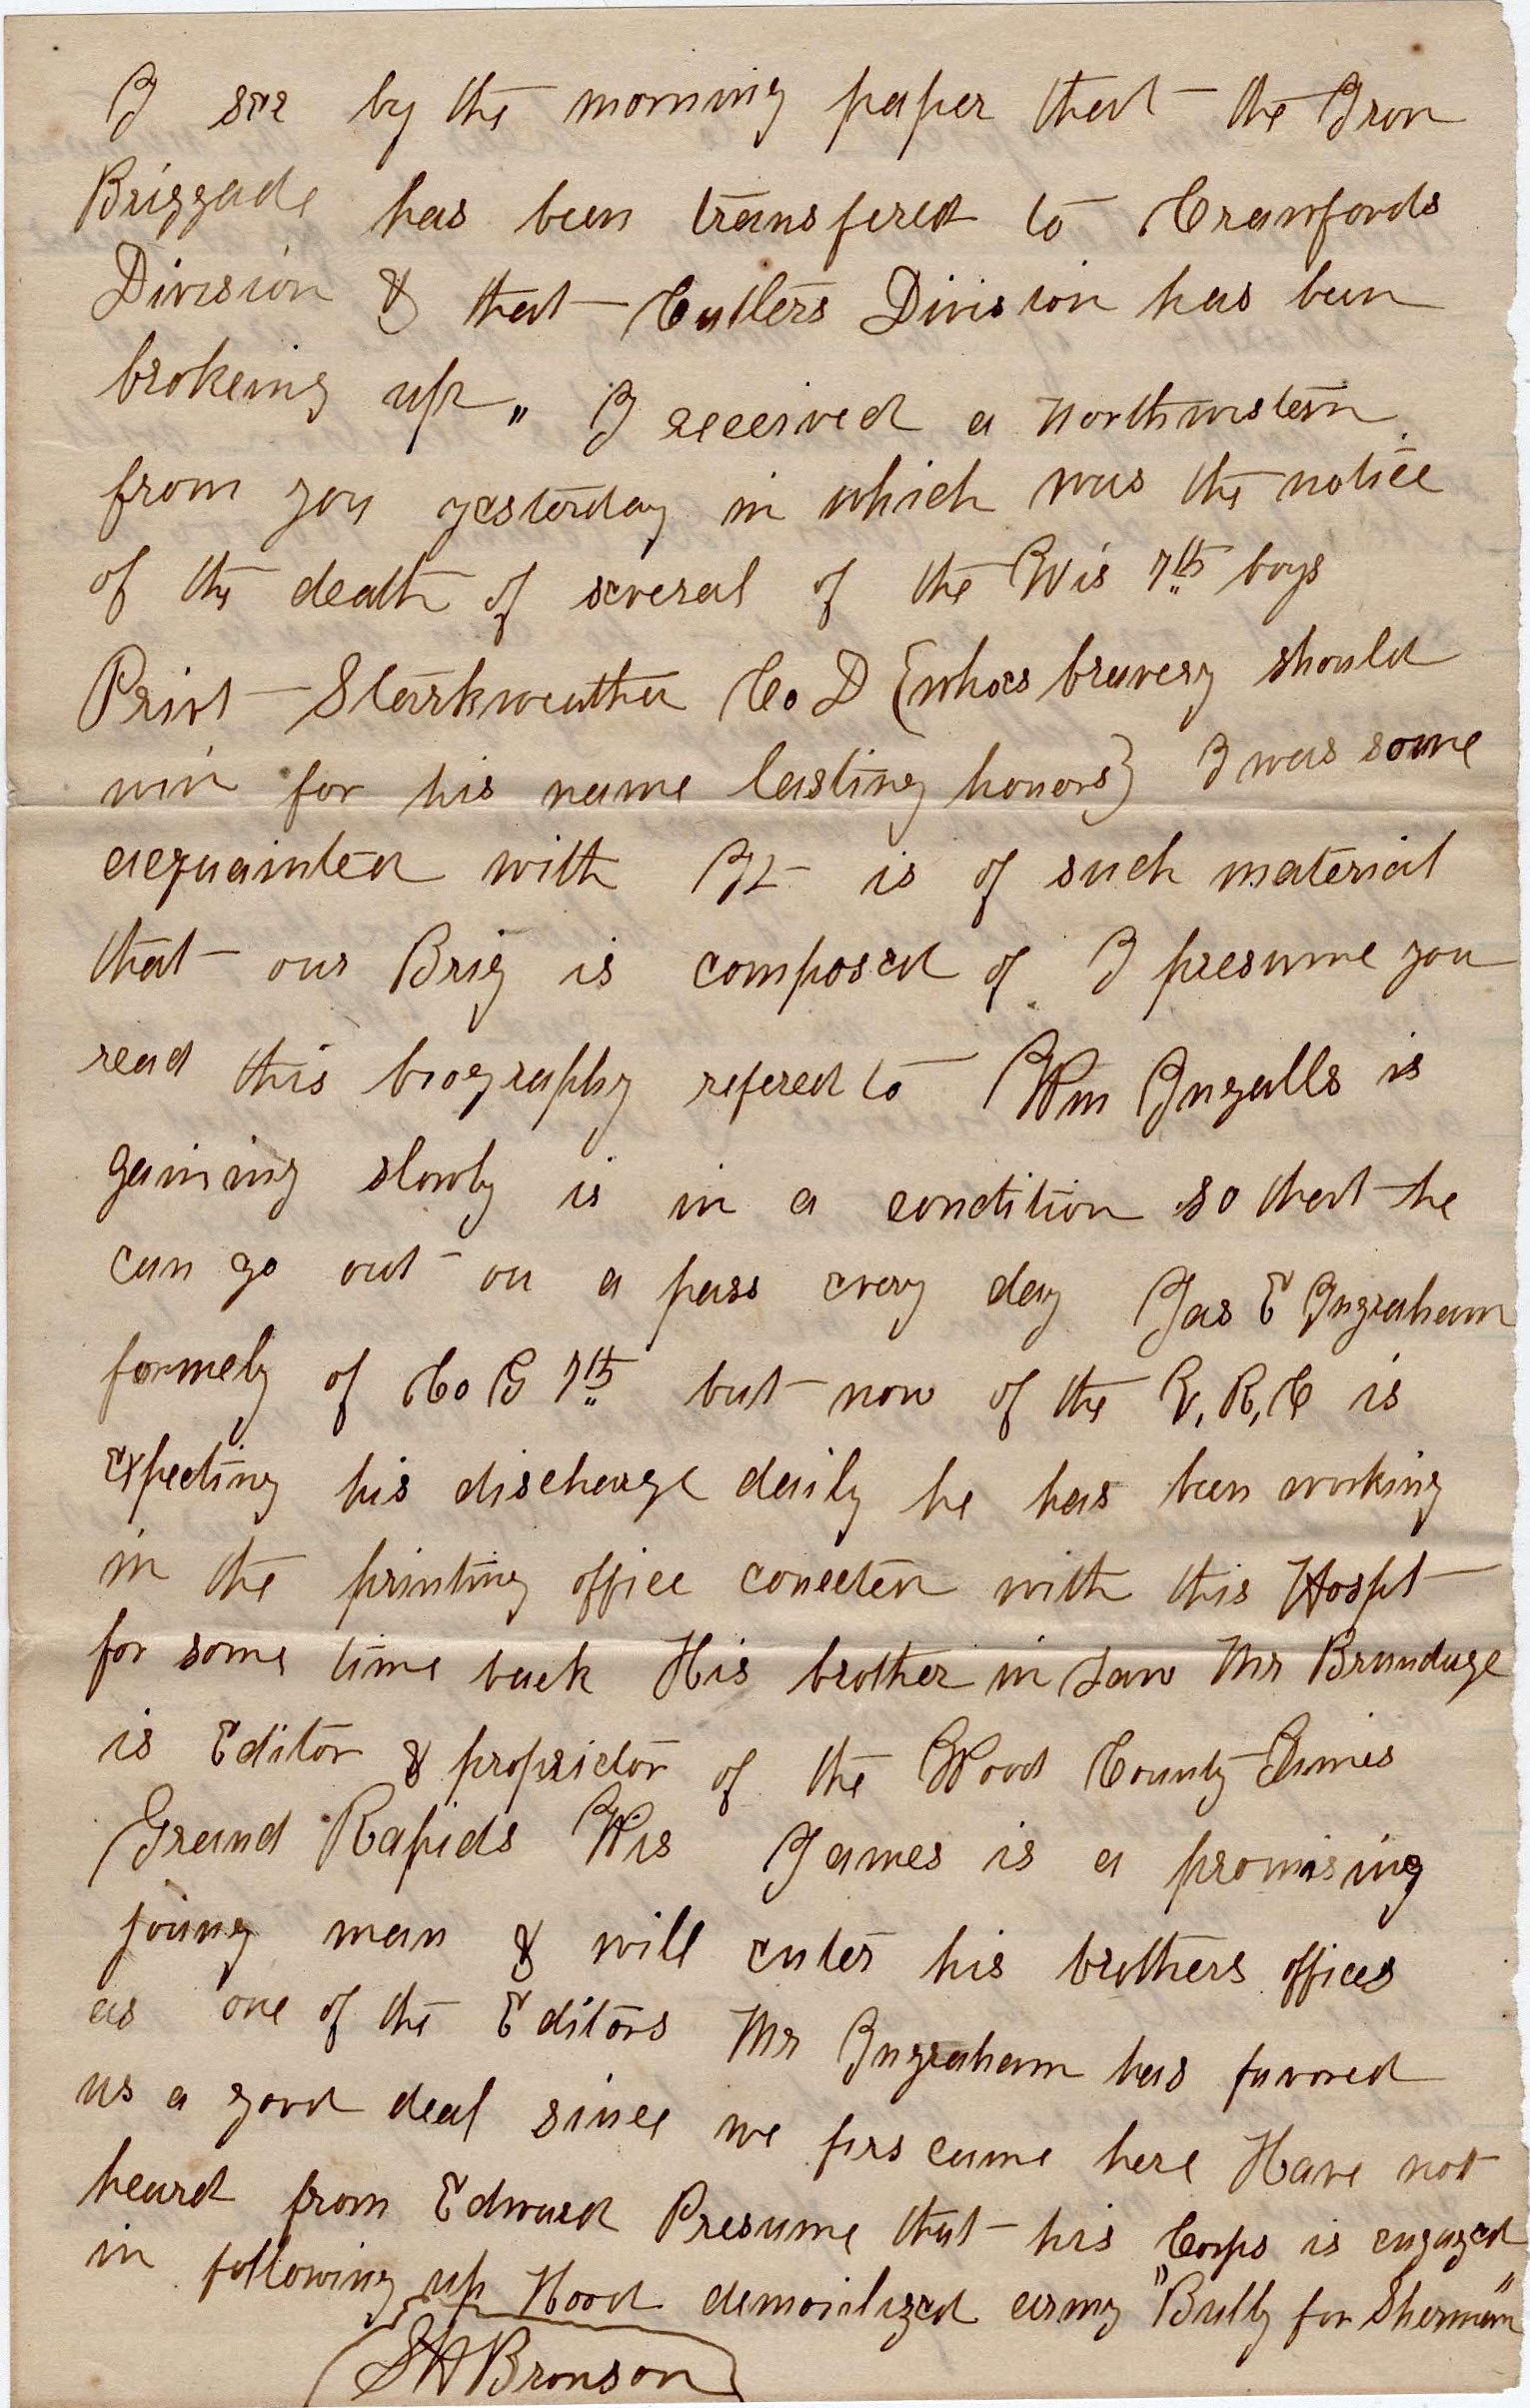 I see by the morning paper that the Iron
Briggade has been transfered to Crawfords
Division & that Cutlers Division has been
brokeing up „ I received a Northwestern
from you yesterday in which was the notice
of the death of several of the Wis 7th boys
Privt Starkweather Co D {whoes bravery should
win for his name lasting honors} I was some
acquainted with It is of such material
that our Brig is composed of I presume you
read this biography refered to Wm Ingalls is
gaining slowly is in a condition so that he
can go out on a pass every day Jas E Ingraham
formely of Co G 7th but now of the V, R, C is
expecting his discharge daily he has been working
in the printing office conected with this Hospt
for some time back His brother in Law Mr Brundage
is Editor & proprietor of the Wood County Times
Grand Rapids Wis James is a promising
young man & will enter his brothers offices
as one of the Editors Mr Ingraham has favored
us a good deal since we firs came here Have not
heard from Edward Presume that his Corps is engaged
in following up Hood demoralized army "Bully for Sherman"
S H Bronson